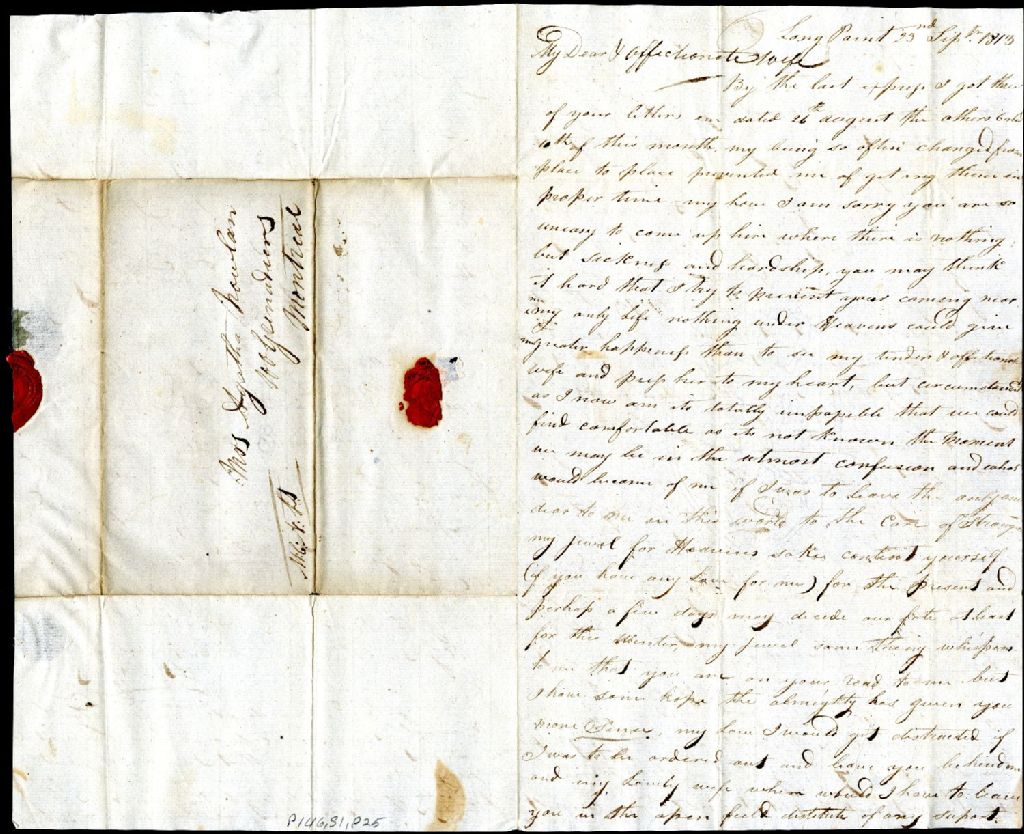 Mrs Agatha Nowlan
Montreal
P146,S1,P25
Long Point 23rd Septr 1813
My Dear & affectionate wife
By the last express I got three
of your letters one dated 26th august the others
10th of this month, my being so often changed from
place to place prevented me of getting them in
proper time my love I am sorry you are so
uneasy to come up here where there is nothing
but sickness and hardship, you may think
it hard that I try to prevent your coming near
me my only life nothing under Heavens could give
me greater happiness than to see my tender & affectionate
wife and press her to my heart, but circumstanced
as I now am its totally impossible that we could
find comfortable as its not known the moment
we may be in the utmost confusion and what
would become of me if I was to leave the only one
dear to me in this world to the Care of Strangers
my jewel for Heavens sake content yourself
(if you have any Love for me) for the present and
perhap a few days may decide our fate at least
for this Winter, my jewel some thing whispers
to me that you are on your road to me but
I have some hope the almighty has given you
more Sense, my love I would get distracted if
I was to be ordered out and leave you behind me
and my lovely wife where would I have to leave
you in the open field distitute of any suport